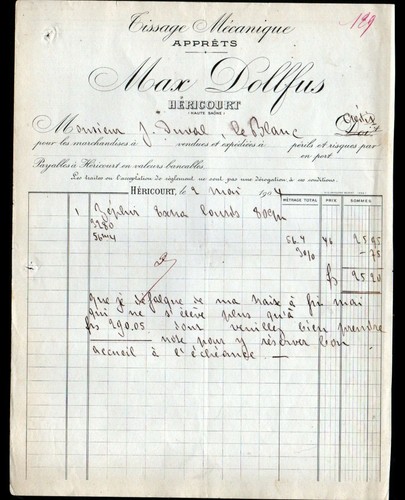 189
Tissage Mécanique
APPRÊTS
Max Dollfus
HÉRICOURT
(HAUTE SAÔNE)
Crédit
Monsieur J. Duval, Le Blanc
pour les marchandises à vendues et expédiées à périls et risques par
en port
Payables à Héricourt en valeurs bancables.
Les traites ou l'acceptation de règlement ne sont pas une dérogation à ces conditions.
HÉRICOURT, le 2 mai 1904
MÉTRAGE TOTAL PRIX SOMMES
1 Zéphir Extra lourds 80c/m
3280
56m4 56.4 46 25 95
3% - 75
frs 25 20
que je défalque de ma traite à fin mai
qui ne s'élève plus qu'à
frs 290.05 dont veuillez bien prendre
note pour y réserver bon
accueil à l'échéance. —